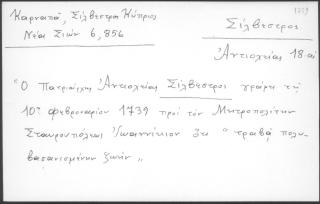 Καρναπᾶ, Σίλβεστρος Κύπριος
Νέα Σιών 6, 856
1739
Σίλβεστρος
Ἀντιοχείας 18 αἰ
"Ὁ Πατριάρχης Ἀντιοχείας Σίλβεστρος γράφει τῇ
10ῃ Φεβρουαρίου 1739 πρὸς τὸν Μητροπολίτην
Σταυρουπόλεως Ἰωαννίκιον ὅτι " τραβᾷ πολυ-
βασανισμένην ζωήν "